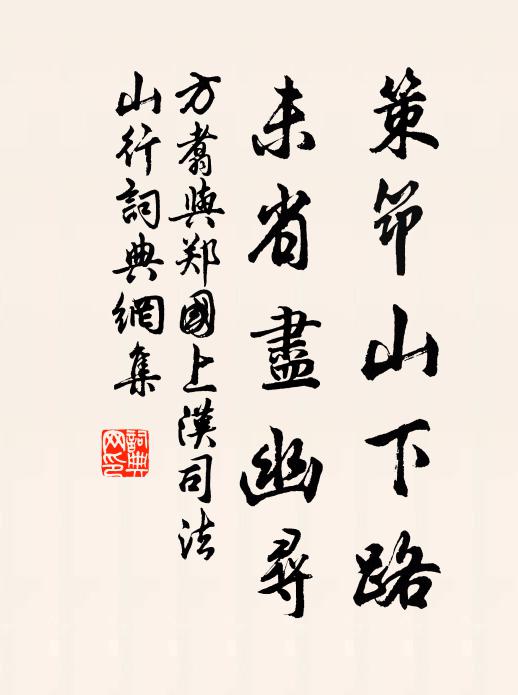 策筇山下路
未省盡幽尋
方翥與郑國上漢司法
山行詞典網集
詞典網印